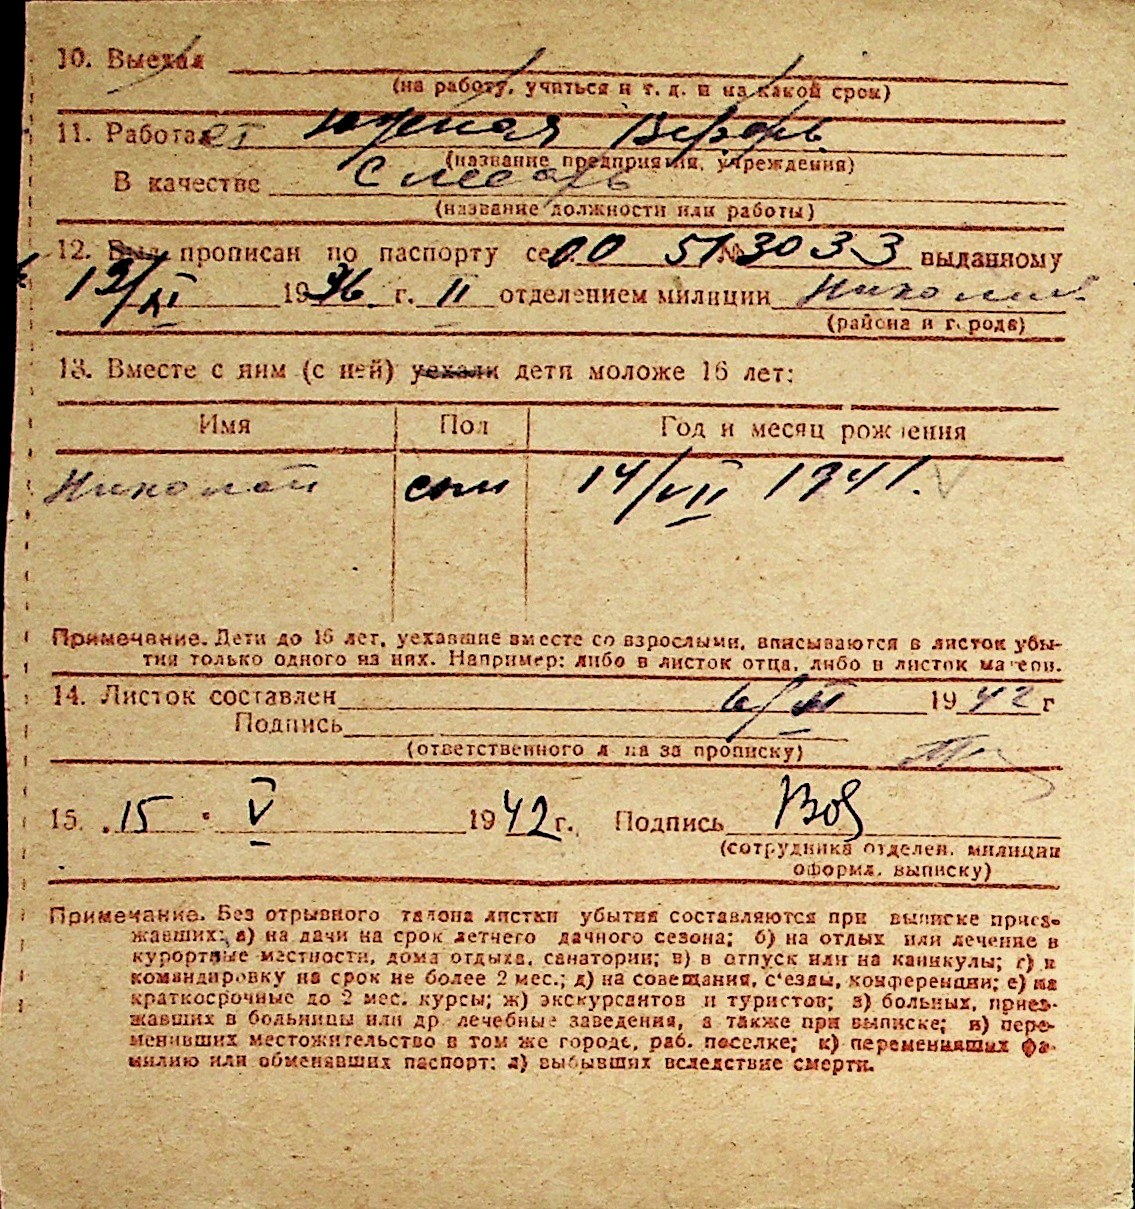 10. Выехал
(на работу, учиться и т. д. и на какой срок)
11. Работает Южная Верфь
(название предприятия, учреждения)
В качестве Слесарь
(название должности или работы)
12. Был прописан по паспорту се 00 № 513033 выданному
19 36 г. II отделением милиции Николаев
(района и города)
13. Вместе с ним (с ней) уехали дети моложе 16 лет:
Имя Пол Год и месяц рождения
Николай сын 14/VII 1941.
Примечание. Дети до 16 лет, уехавшие вместе со взрослыми, вписываются в листок убы-
тия только одного из них. Например: либо в листок отца, либо в листок матери.
14. Листок составлен 1942 г
Подпись
(ответственного лица за прописку)
15. 15 • V 1942 г. Подпись
(сотрудника отделен. милиции
оформл. выписку)
Примечание. Без отрывного талона листки убытия составляются при выписке приез-
жавших: а) на дачи на срок летнего дачного сезона; б) на отдых или лечение в
курортные местности, дома отдыха, санатории; в) в отпуск или на каникулы; г) в
командировку на срок не более 2 мес.; д) на совещания, с'езды, конференции; е) на
краткосрочные до 2 мес. курсы; ж) экскурсантов и туристов; з) больных, приез-
жавших в больницы или др. лечебные заведения, а также при выписке; и) пере-
менивших местожительство в том же городе, раб. поселке; к) переменивших фа-
милию или обменявших паспорт; л) выбывших вследствие смерти.